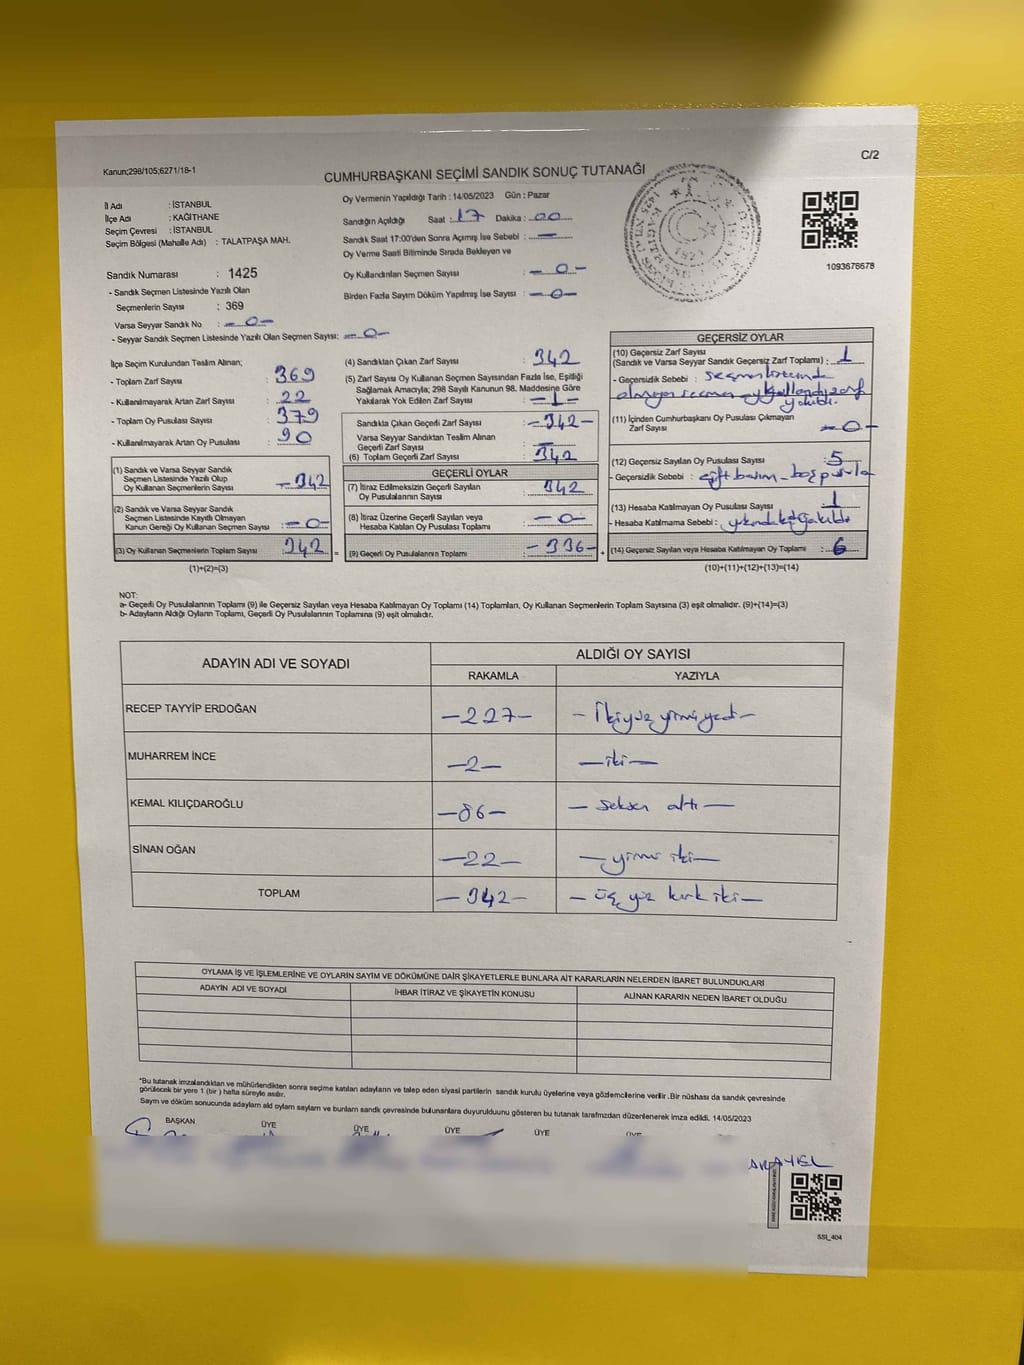 C/2
Kanun;298/105;6271/18-1
CUMHURBAŞKANI SEÇİMİ SANDIK SONUÇ TUTANAĞI
İl Adı : İSTANBUL
İlçe Adı : KAĞITHANE
Seçim Çevresi : İSTANBUL
Seçim Bölgesi (Mahalle Adı) : TALATPAŞA MAH.
Oy Vermenin Yapıldığı Tarih : 14/05/2023 Gün : Pazar
Sandığın Açıldığı Saat : 17 Dakika : 00
Sandık Saat 17:00'den Sonra Açımış İse Sebebi : —
Oy Verme Saati Bitiminde Sırada Bekleyen ve
Oy Kullandırılan Seçmen Sayısı : —0—
Birden Fazla Sayım Döküm Yapılmış İse Sayısı : —0—
1093676678
Sandık Numarası : 1425
- Sandık Seçmen Listesinde Yazılı Olan
Seçmenlerin Sayısı : 369
Varsa Seyyar Sandık No : —0—
- Seyyar Sandık Seçmen Listesinde Yazılı Olan Seçmen Sayısı: —0—
İlçe Seçim Kurulundan Teslim Alınan;
- Toplam Zarf Sayısı : 369
- Kullanılmayarak Artan Zarf Sayısı : 22
- Toplam Oy Pusulası : 379
- Kullanılmayarak Artan Oy Pusulası : 90
(1) Sandık ve Varsa Seyyar Sandık
Seçmen Listesinde Yazılı Olup
Oy Kullanan Seçmenlerin Sayısı : —342
(2) Sandık ve Varsa Seyyar Sandık
Seçmen Listesinde Kayıtlı Olmayan
Kanun Gereği Oy Kullanan Seçmen Sayısı : —0—
(3) Oy Kullanan Seçmenlerin Toplam Sayısı : 342
(1)+(2)=(3)
(4) Sandıktan Çıkan Zarf Sayısı : 342
(5) Zarf Sayısı Oy Kullanan Seçmen Sayısından Fazla İse, Eşitliği
Sağlamak Amacıyla; 298 Sayılı Kanunun 98. Maddesine Göre
Yakılarak Yok Edilen Zarf Sayısı : —1—
Sandıkla Çıkan Geçerli Zarf Sayısı : —342—
Varsa Seyyar Sandıktan Teslim Alınan
Geçerli Zarf Sayısı : —
(6) Toplam Geçerli Zarf Sayısı : 342
GEÇERLİ OYLAR
(7) İtiraz Edilmeksizin Geçerli Sayılan
Oy Pusulalarının Sayısı : 342
(8) İtiraz Üzerine Geçerli Sayılan veya
Hesaba Katılan Oy Pusulası Toplamı : —0—
(9) Geçerli Oy Pusulalarının Toplamı : —336—
GEÇERSİZ OYLAR
(10) Geçersiz Zarf Sayısı
(Sandık ve Varsa Seyyar Sandık Geçersiz Zarf Toplamı) : 1
- Geçersizlik Sebebi : seçmen listesinde
olmayan seçmen oy kullandı zarf
yakıldı.
(11) İçinden Cumhurbaşkanı Oy Pusulası Çıkmayan
Zarf Sayısı : —0—
(12) Geçersiz Sayılan Oy Pusulası Sayısı : 5
- Geçersizlik Sebebi : çift basım - boş pusula
(13) Hesaba Katılmayan Oy Pusulası Sayısı : 1
- Hesaba Katılmama Sebebi :
(14) Geçersiz Sayılan veya Hesaba Katılmayan Oy Toplamı : 6
(10)+(11)+(12)+(13)=(14)
NOT:
a- Geçerli Oy Pusulalarının Toplamı (9) ile Geçersiz Sayılan veya Hesaba Katılmayan Oy Toplamı (14) Toplamları, Oy Kullanan Seçmenlerin Toplam Sayısına (3) eşit olmalıdır. (9)+(14)=(3)
b- Adayların Aldığı Oyların Toplamı, Geçerli Oy Pusulalarının Toplamına (9) eşit olmalıdır.
ADAYIN ADI VE SOYADI ALDIĞI OY SAYISI
RAKAMLA YAZIYLA
RECEP TAYYİP ERDOĞAN —227— —İkiyüz yirmi yedi—
MUHARREM İNCE —2— —iki—
KEMAL KILIÇDAROĞLU —86— —seksen altı—
SİNAN OĞAN —22— —yirmi iki—
TOPLAM —342— —üç yüz kırk iki—
OYLAMA İŞ VE İŞLEMLERİNE VE OYLARIN SAYIM VE DÖKÜMÜNE DAİR ŞİKAYETLERLE BUNLARA AİT KARARLARIN NELERDEN İBARET BULUNDUKLARI
ADAYIN ADI VE SOYADI İHBAR İTİRAZ VE ŞİKAYETİN KONUSU ALINAN KARARIN NEDEN İBARET OLDUĞU
*Bu tutanak imzalandıktan ve mühürlendikten sonra seçime katılan adayların ve talep eden siyasi partilerin sandık kurulu üyelerine veya gözlemcilerine verilir .Bir nüshası da sandık çevresinde
görülecek bir yere 1 (bir ) hafta süreyle asılır.
Sayım ve döküm sonucunda adayların aldı oyların sayların ve bunların sandık çevresinde bulunanlara duyurulduunu gösteren bu tutanak tarafmzdan düzenlenerek imza edildi. 14/05/2023
BAŞKAN ÜYE ÜYE ÜYE ÜYE ÜYE
SSİ_404